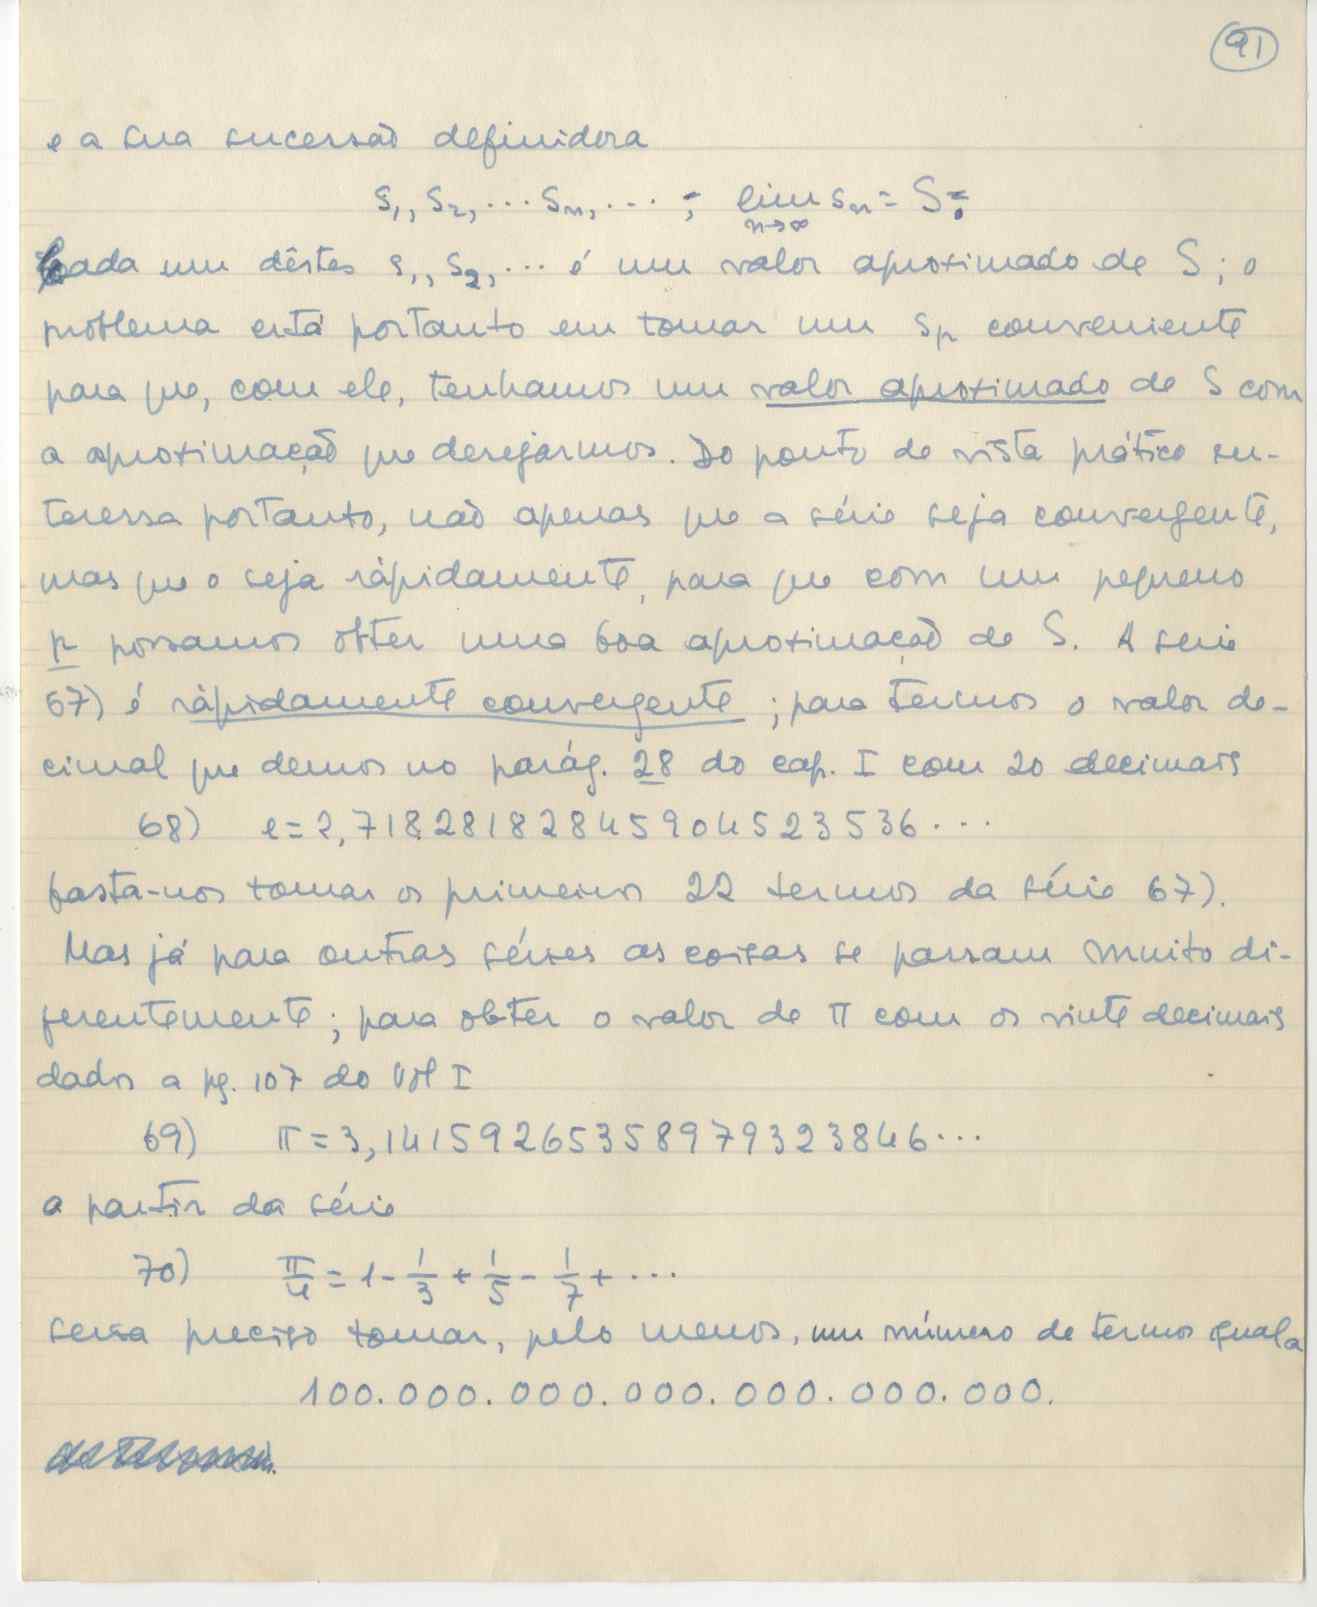 91
e a sua sucessão definidora
s₁, s₂, ... sₙ, ... ; lim sₙ = S.
n→∞
Cada um dêstes s₁, s₂, ... é um valor aproximado de S; o
problema está portanto em tomar um sₚ conveniente
para que, com ele, tenhamos um valor aproximado de S com
a aproximação que desejarmos. Do ponto de vista prático in-
teressa portanto, não apenas que a série seja convergente,
mas que o seja ràpidamente, para que com um pequeno
p possamos obter uma boa aproximação de S. A serie
67) é ràpidamente convergente; para termos o valor de-
cimal que demos no parág. 28 do cap. I com 20 decimais
68) e = 2,71828182845904523536...
basta-nos tomar os primeiros 22 termos da série 67).
Mas já para outras séries as coisas se passam muito di-
ferentemente; para obter o valor de π com os vinte decimais
dados a pg. 107 do Vol I
69) π = 3,14159265358979323846...
a partir da série
70) π/4 = 1 - 1/3 + 1/5 - 1/7 + ...
seria preciso tomar, pelo menos, um número de termos igual a
100.000.000.000.000.000.000.